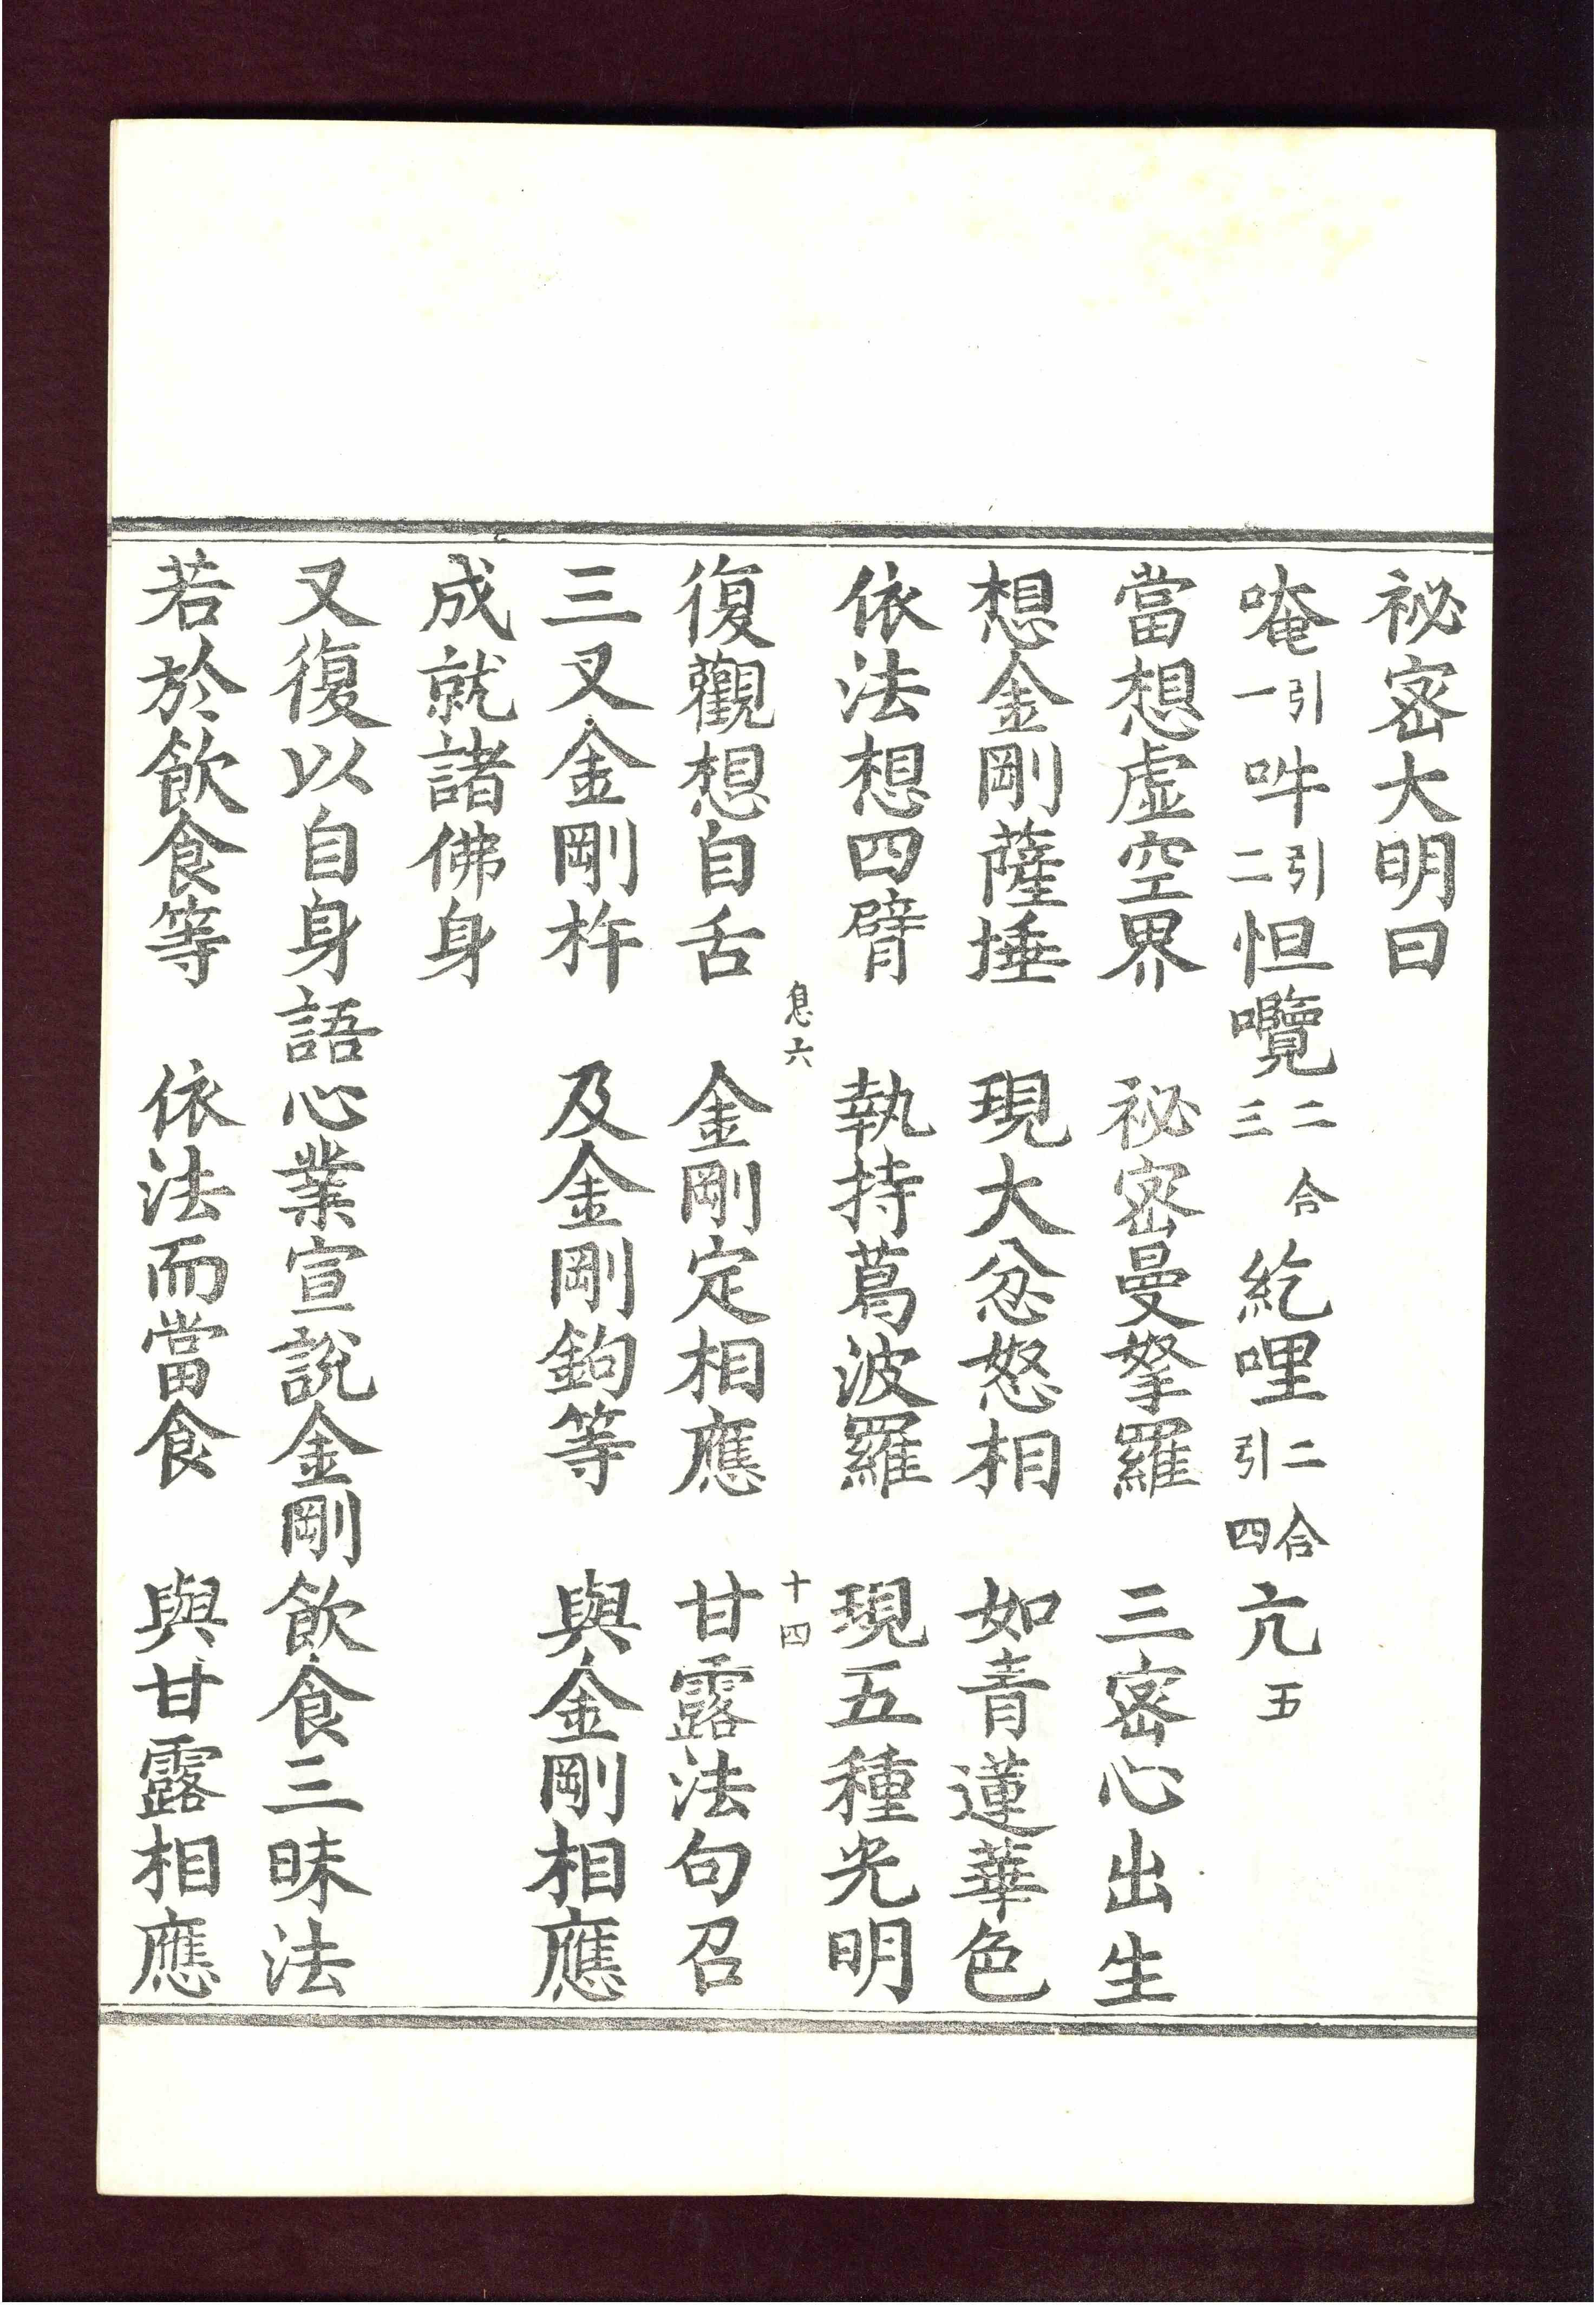 祕密大明曰
唵引一吽引二怛囕二合三紇哩二合引四亢五
當想虛空界　祕密曼拏羅　三密心出生
想金剛薩埵　現大忿怒相　如青蓮華色
依法想四臂　執持葛波羅　現五種光明
息六　十四
復觀想自舌　金剛定相應　甘露法句召
三叉金剛杵　及金剛鉤等　與金剛相應
成就諸佛身
又復以自身語心業宣說金剛飲食三昧法
若於飲食等　依法而當食　與甘露相應